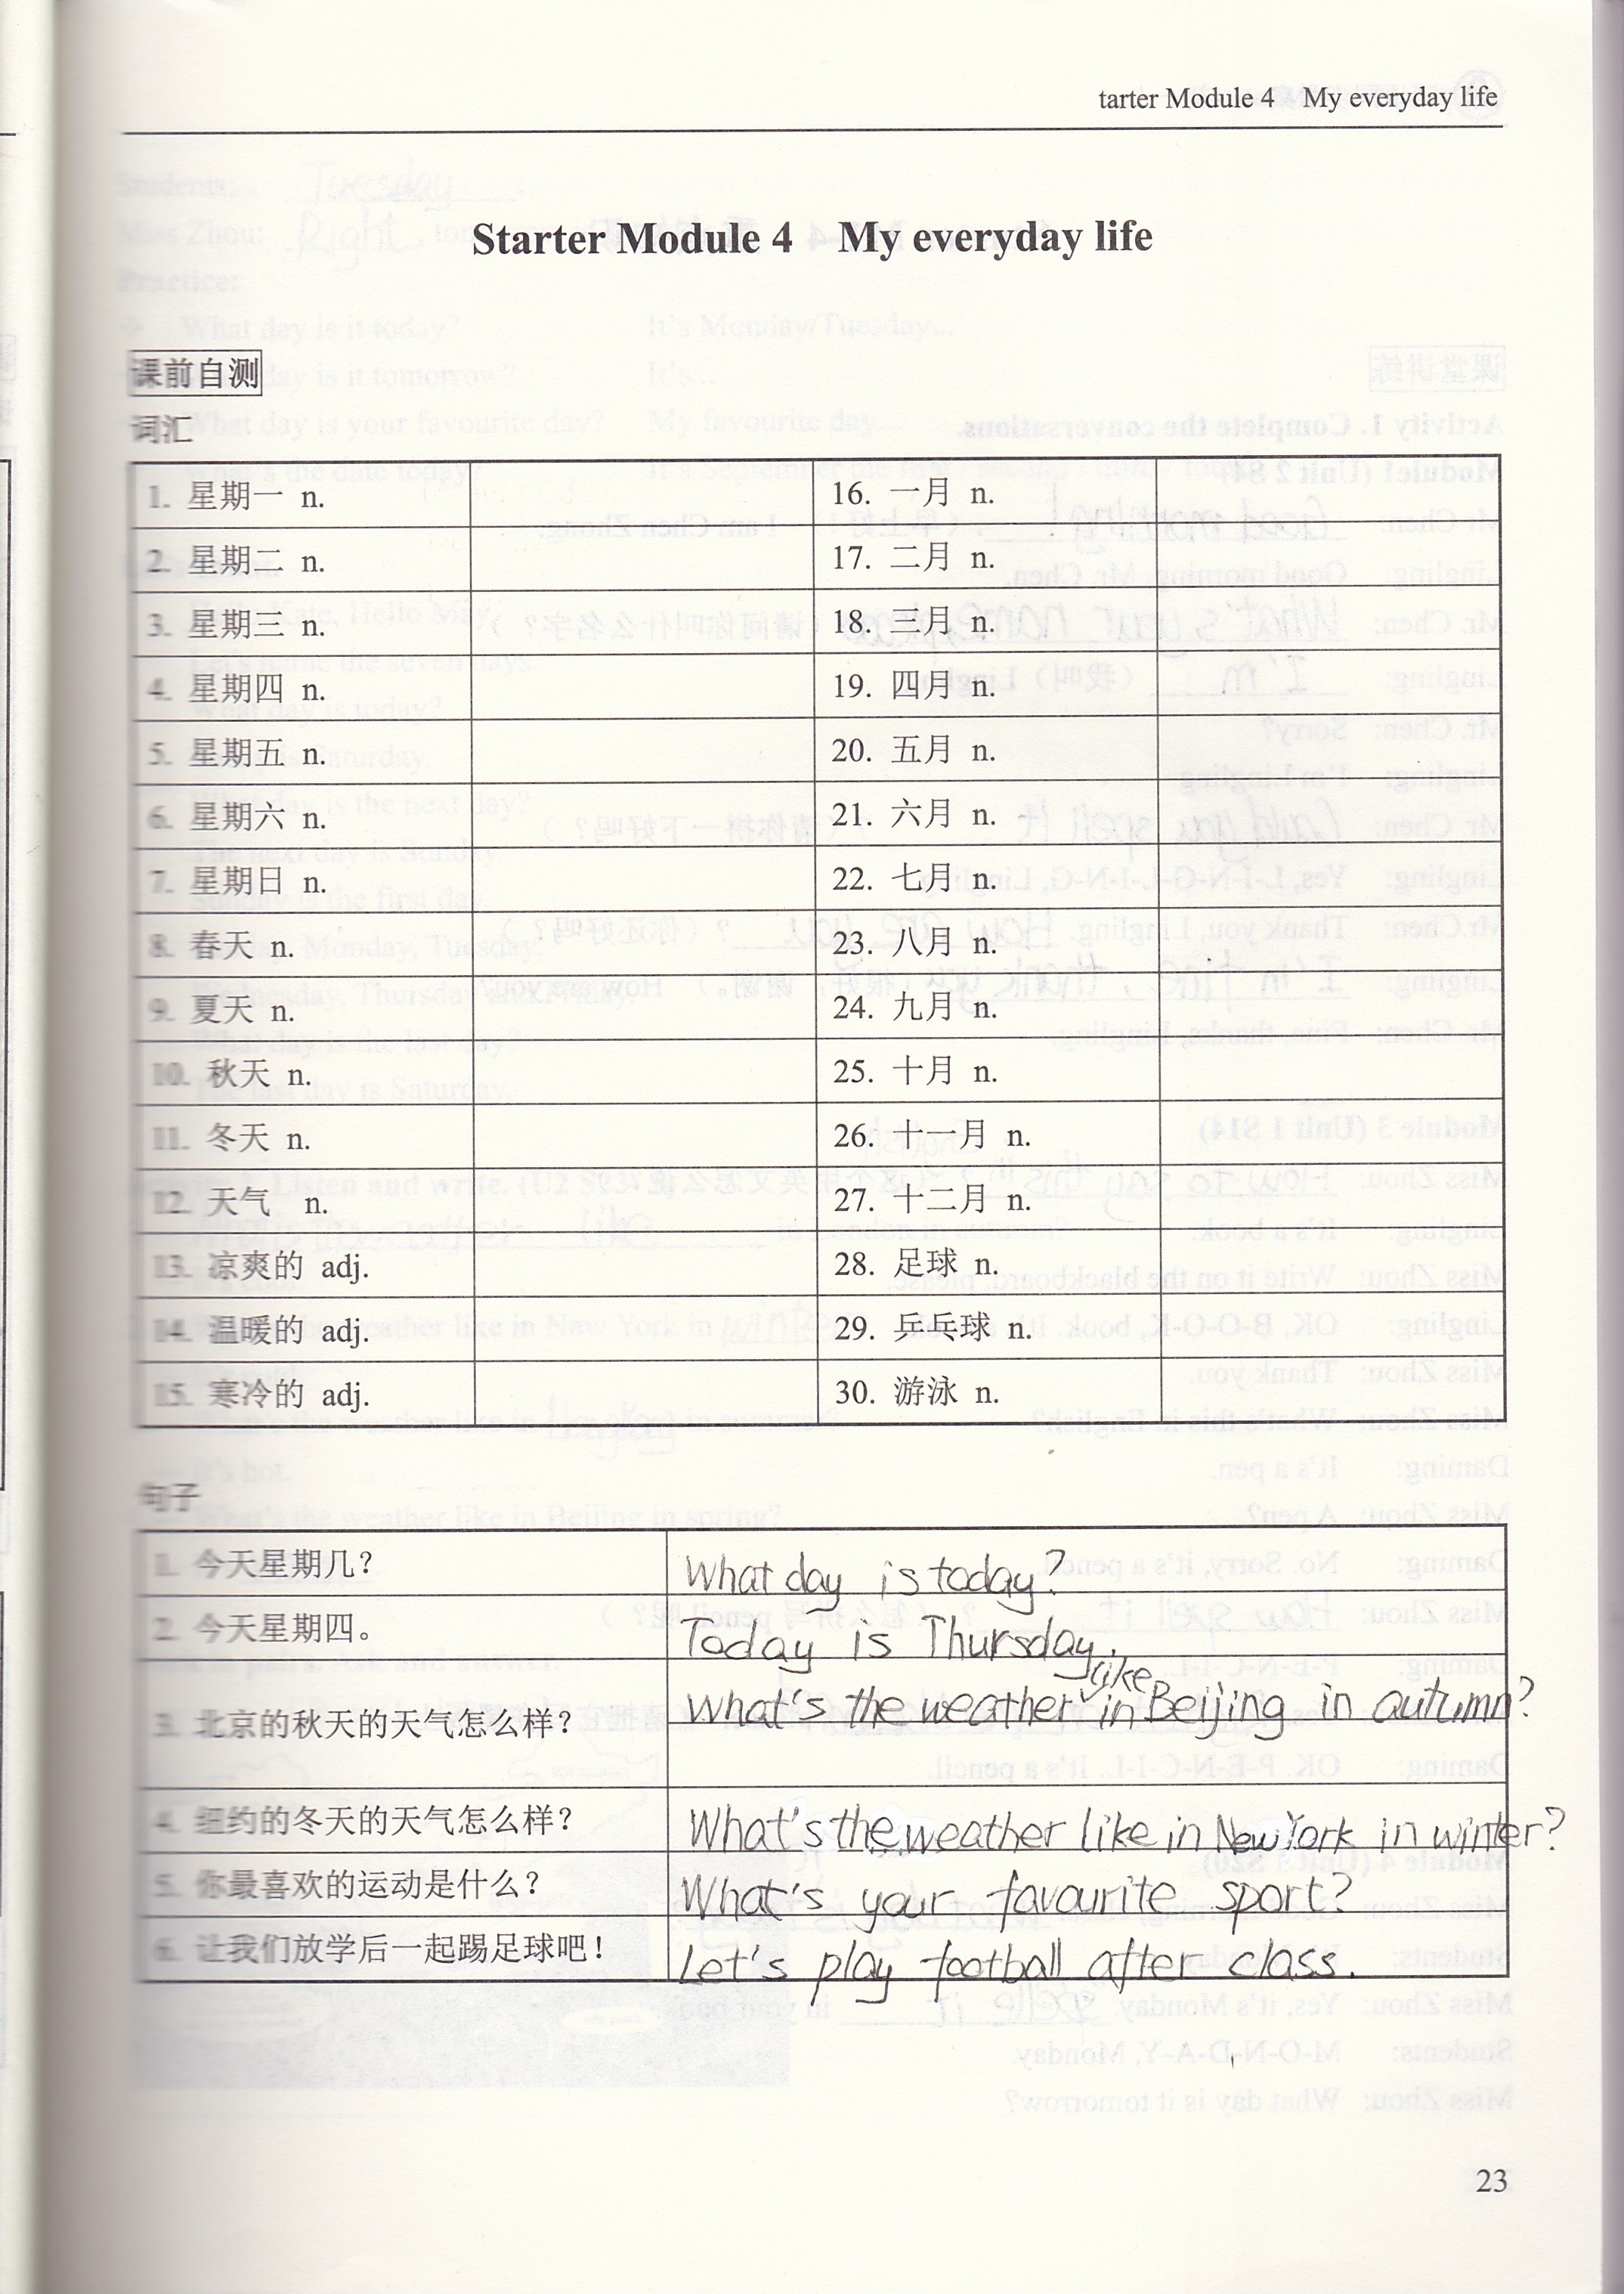 tarter Module 4 My everyday life
Starter Module 4 My everyday life
课前自测
词汇
1. 星期一 n. 16. 一月 n.
2. 星期二 n. 17. 二月 n.
3. 星期三 n. 18. 三月 n.
4. 星期四 n. 19. 四月 n.
5. 星期五 n. 20. 五月 n.
6. 星期六 n. 21. 六月 n.
7. 星期日 n. 22. 七月 n.
8. 春天 n. 23. 八月 n.
9. 夏天 n. 24. 九月 n.
10. 秋天 n. 25. 十月 n.
11. 冬天 n. 26. 十一月 n.
12. 天气 n. 27. 十二月 n.
13. 凉爽的 adj. 28. 足球 n.
14. 温暖的 adj. 29. 乒乓球 n.
15. 寒冷的 adj. 30. 游泳 n.
句子
1. 今天星期几? What day is today?
2. 今天星期四。 Today is Thursday.
3. 北京的秋天的天气怎么样? What's the weather like in Beijing in autumn?
4. 纽约的冬天的天气怎么样? What's the weather like in New York in winter?
5. 你最喜欢的运动是什么? What's your favourite sport?
6. 让我们放学后一起踢足球吧! Let's play football after class.
23